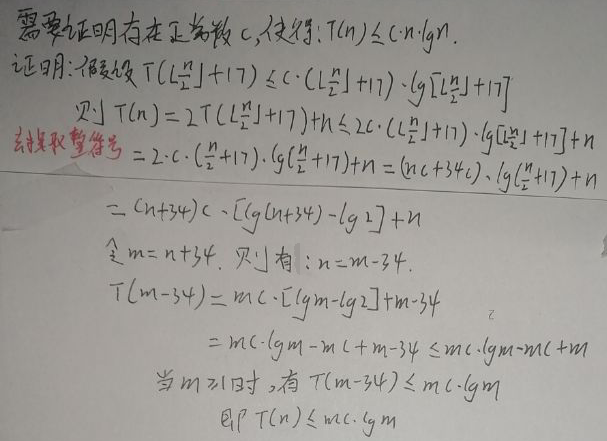 需要证明存在正常数c,使得:T(n)≤c·n·lgn.
证明:假设T(⌊n/2⌋+17)≤c·(⌊n/2⌋+17)·lg[⌊n/2⌋+17]
则T(n)=2T(⌊n/2⌋+17)+n≤2c·(⌊n/2⌋+17)·lg[⌊n/2⌋+17]+n
去掉取整符号 =2·c·(n/2+17)·lg(n/2+17)+n=(nc+34c)·lg(n/2+17)+n
=(n+34)c·[lg(n+34)-lg2]+n
令m=n+34.则有:n=m-34.
T(m-34)=mc·[lgm-lg2]+m-34
=mc·lgm-mc+m-34≤mc·lgm-mc+m
当m≥1时,有T(m-34)≤mc·lgm
即T(n)≤mc·lgm